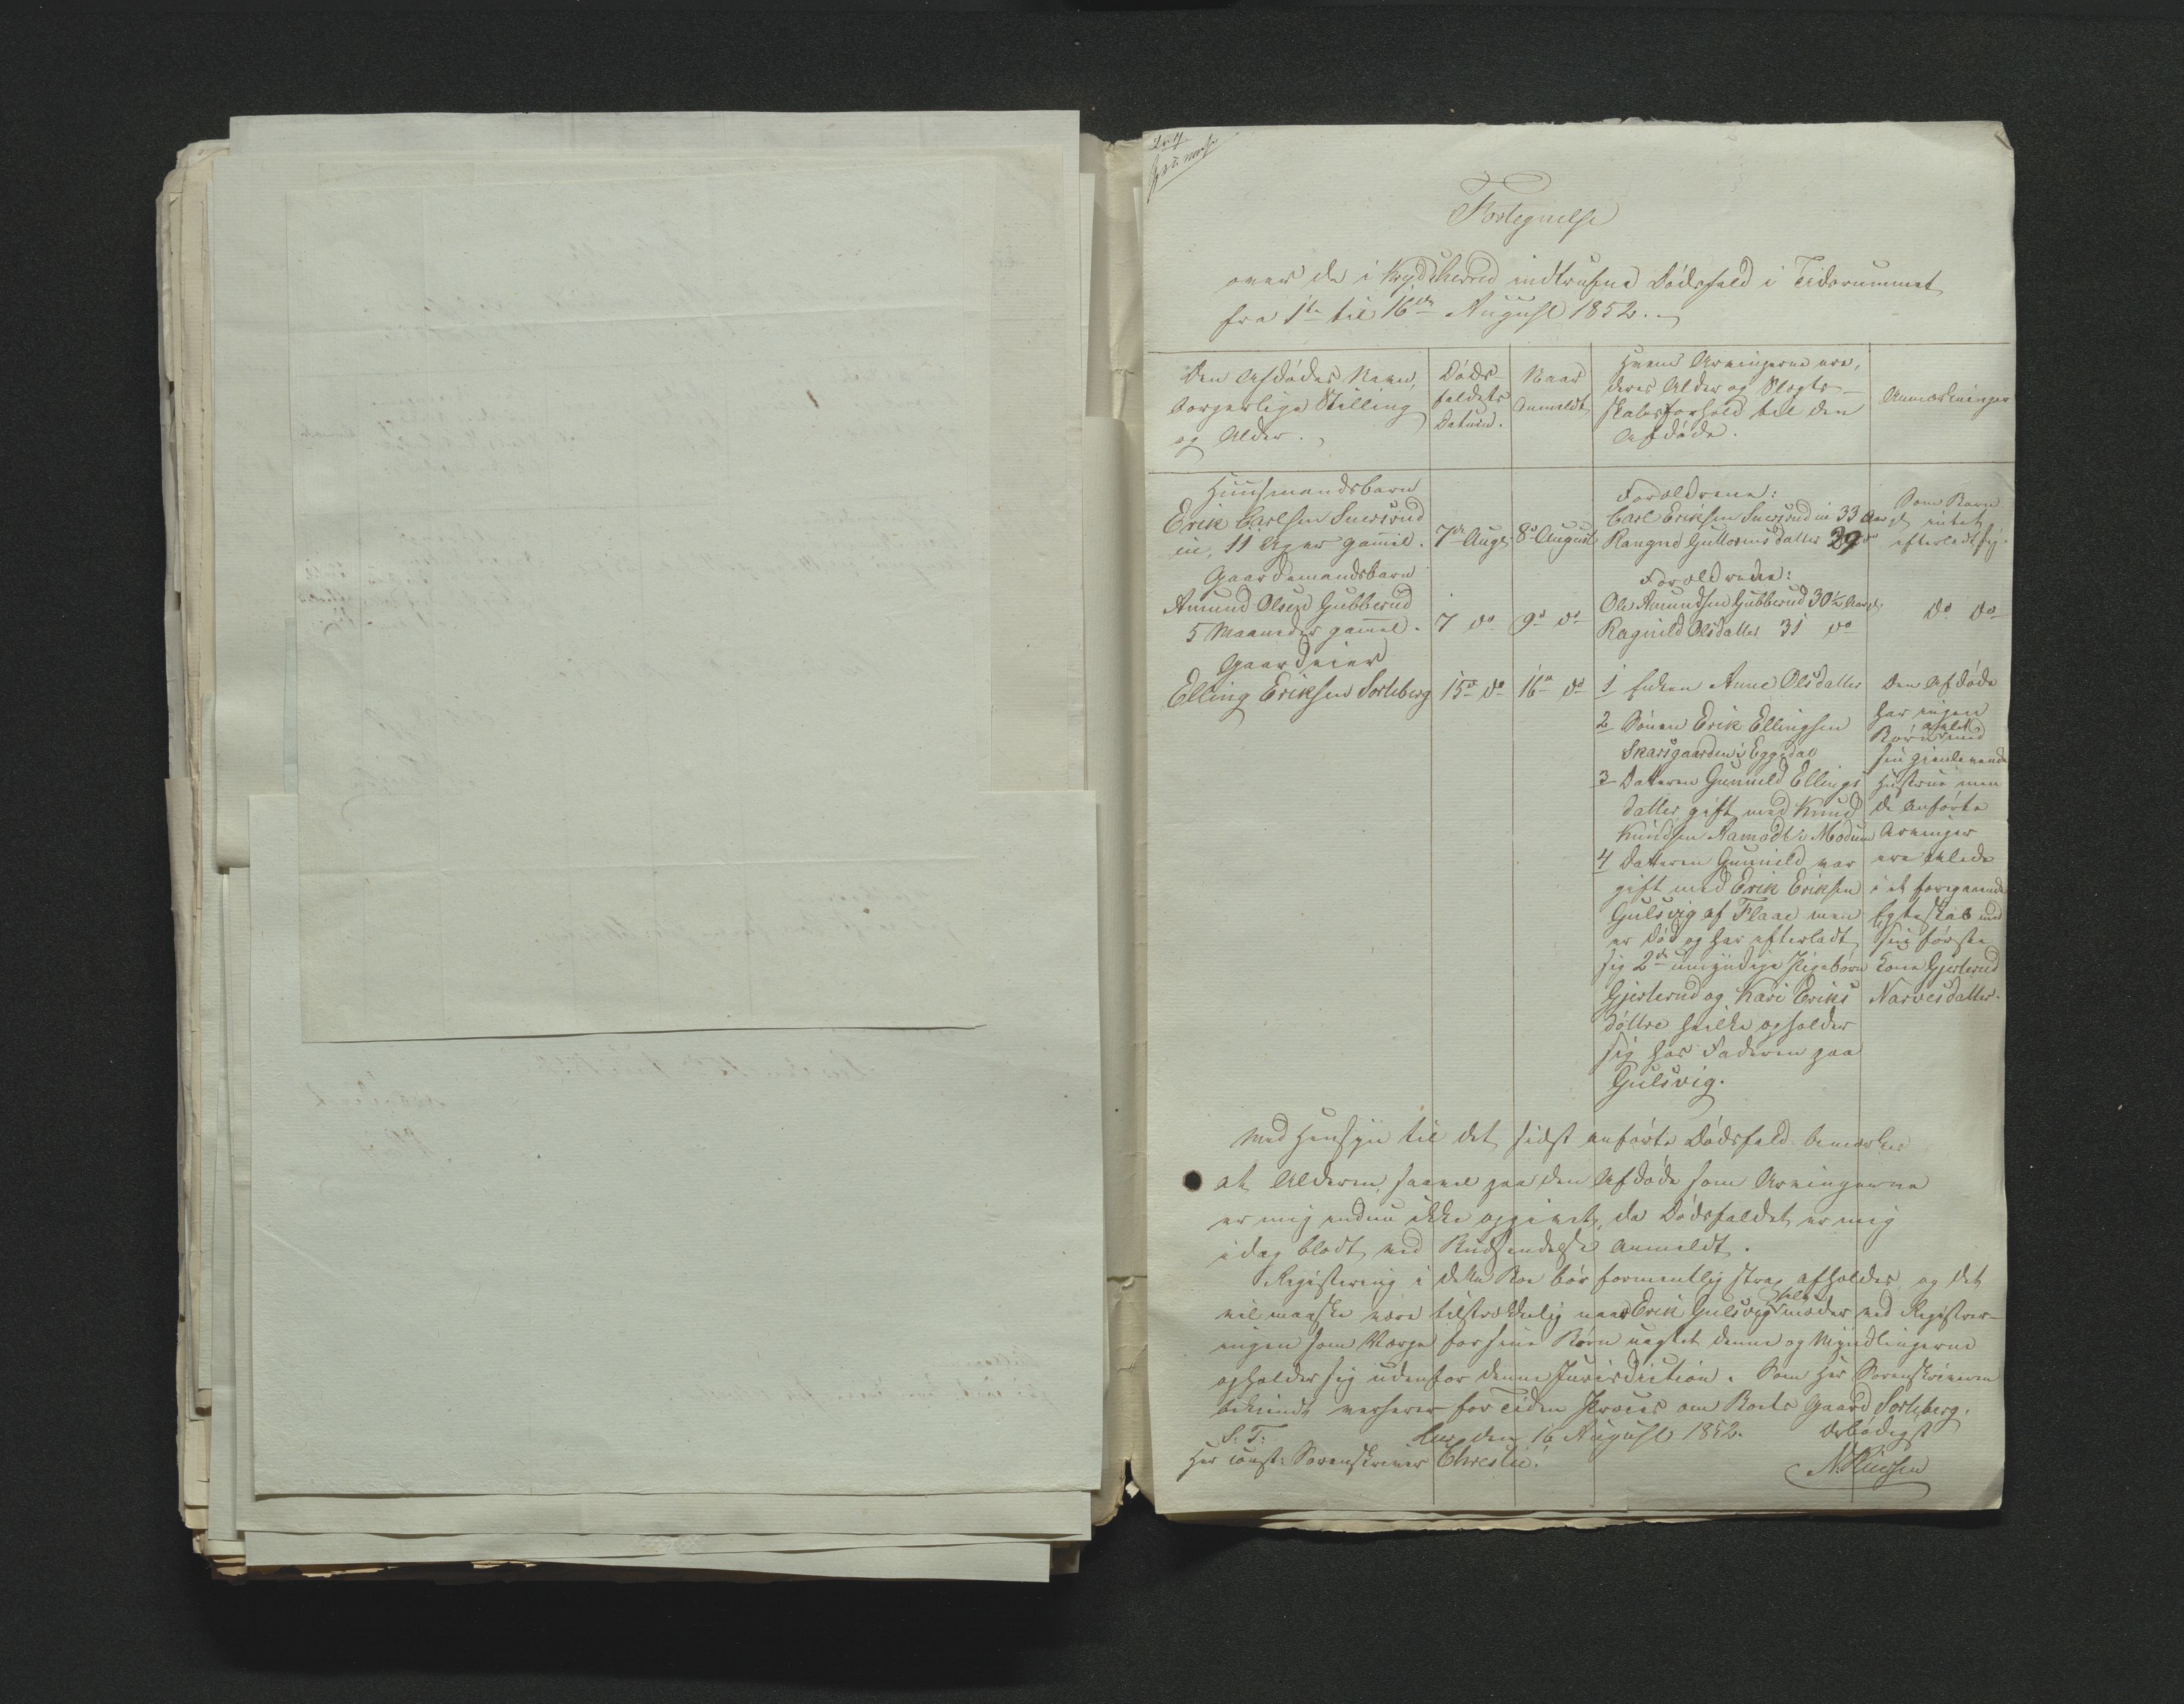 Fortegnelse
over de i Krydsherred indtrufne Dödsfald i Tidsrummet
fra 1te til 16de August 1852.
Den Afdödes Navn,
borgerlige Stilling
og Alder.
Döds-
faldets
Datum.
Naar
Anmeldt
Hvem Arvingerne ere,
deres Alder og Slægt-
skabsforhold til den
Afdöde.
Anmærkninger
Huusmandsbarn
Erik Carlsen Snersrud
ie, 11 Uger gamel.
7de Augst
8de August
Forældrene:
Carl Eriksen Snersrud ie 33 Aar gl
Rangnd Guttormsdatter 29 do
Som Barn
intet
efterladt sig.
Gaardmandsbarn
Amund Olsen Gubberud
5 Maaneder gamel.
7 do
9de do
Forældrene:
Ole Amundsen Gubberud 30½ Aar gl.
Ragnild Olsdatter 31 do
do do
Gaardeier
Elling Eriksen Sorteberg
15de do
16de do
1 Enken Anne Olsdatter
2 Sönen Erik Ellingsen
Skarsgaarden i Eggedal
3 Datteren Gunnild Ellings
datter gift med Knud
Knudsen Aamodt i Modum
4 Datteren Gunnild var
gift med Erik Eriksen
Gulsvig af Flaae men
er död og har efterladt
sig 2de umyndige Pigebörn
Gjertrud og Kari Eriks
döttre hvilke opholder
sig hos Faderen paa
Gulsvig.
Den Afdöde
har ingen
Börn avlet med
sin gjenlevende
Hustrue men
de anförte
Arvinger
ere avlede
i et foregaaende
Egteskab med
sin förste
Kone Gjertrud
Narvesdatter.
Med Hensyn til det sidst anförte Dödsfald bemærkes
at Alderen, saavel paa den Afdöde som Arvingerne
er mig endnu ikke opgivet, da Dödsfaldet er mig
idag blodt ved Budsendelse anmeldt.
Registrering i dette Boe bör formentlig strax afholdes og det
vil maaske være tilstrækkelig naar Erik Gulsvig selv möder ved Registrer-
ingen som Værge for sine Börn uagtet denne og Myndlingerne
opholder sig udenfor denne Jurisdiction. Som Hr Sorenskriveren
bekiendt verserer for Tiden Proces om Boets Gaard Sorteberg.
S. T.
den 16 August 1852.
Ærbödigst
Hr const: Sorenskriver Christie!